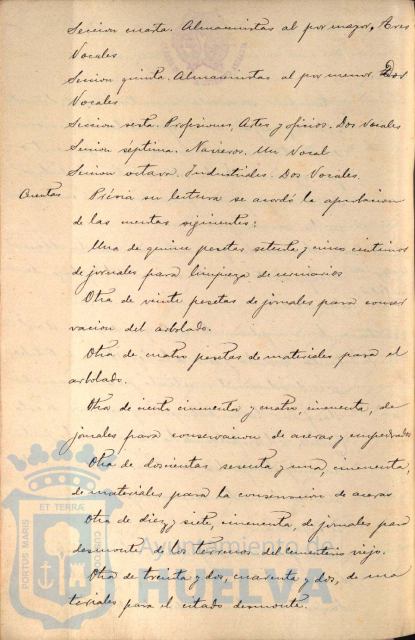 Sección cuarta. Almacenistas al por mayor, Tres
Vocales
Sección quinta. Almacenistas al por menor. Dos
Vocales
Sección sexta. Profesiones, Artes y oficios. Dos Vocales
Sección septima. Navieros. Un Vocal
Sección octava. Industriales. Dos Vocales.
Cuentas
Prévia su lectura se acordó la aprobacion
de las cuentas siguientes:
Una de quince pesetas setenta y cinco centimos
de jornales para limpieza de urinarios
Otra de veinte pesetas de jornales para conser
vacion del arbolado.
Otra de cuatro pesetas de materiales para el
arbolado.
Otra de ciento cincuenta y cuatro, cincuenta, de
jornales para conservacion de aceras y empedrados
Otra de doscientas sesenta y una, cincuenta,
de materiales para la conservacion de aceras
Otra de diez y siete, cincuenta, de jornales para
desmonte de los terrenos del Cementerio viejo.
Otra de treinta y dos, cuarenta y dos, de ma
teriales para el citado desmonte.
PORTUS MARIS
ET TERRAE
CUSTODIA
Ayuntamiento de
HUELVA